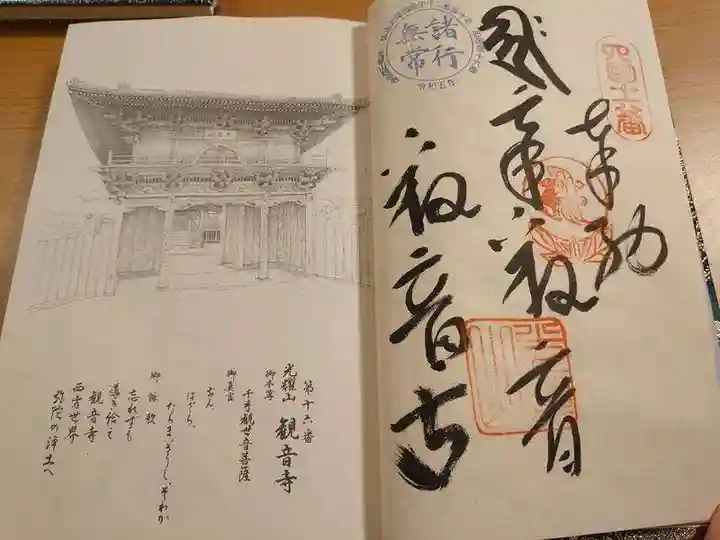 四国十六番
奉納
千手観音
観音寺
諸行
無常
第十六番
光耀山 観音寺
御本尊
千手観世音菩薩
御真言
おん
ばざら
たらま きりく そわか
御詠歌
忘れずも
導き給へ
観音寺
西方世界
弥陀の浄土へ